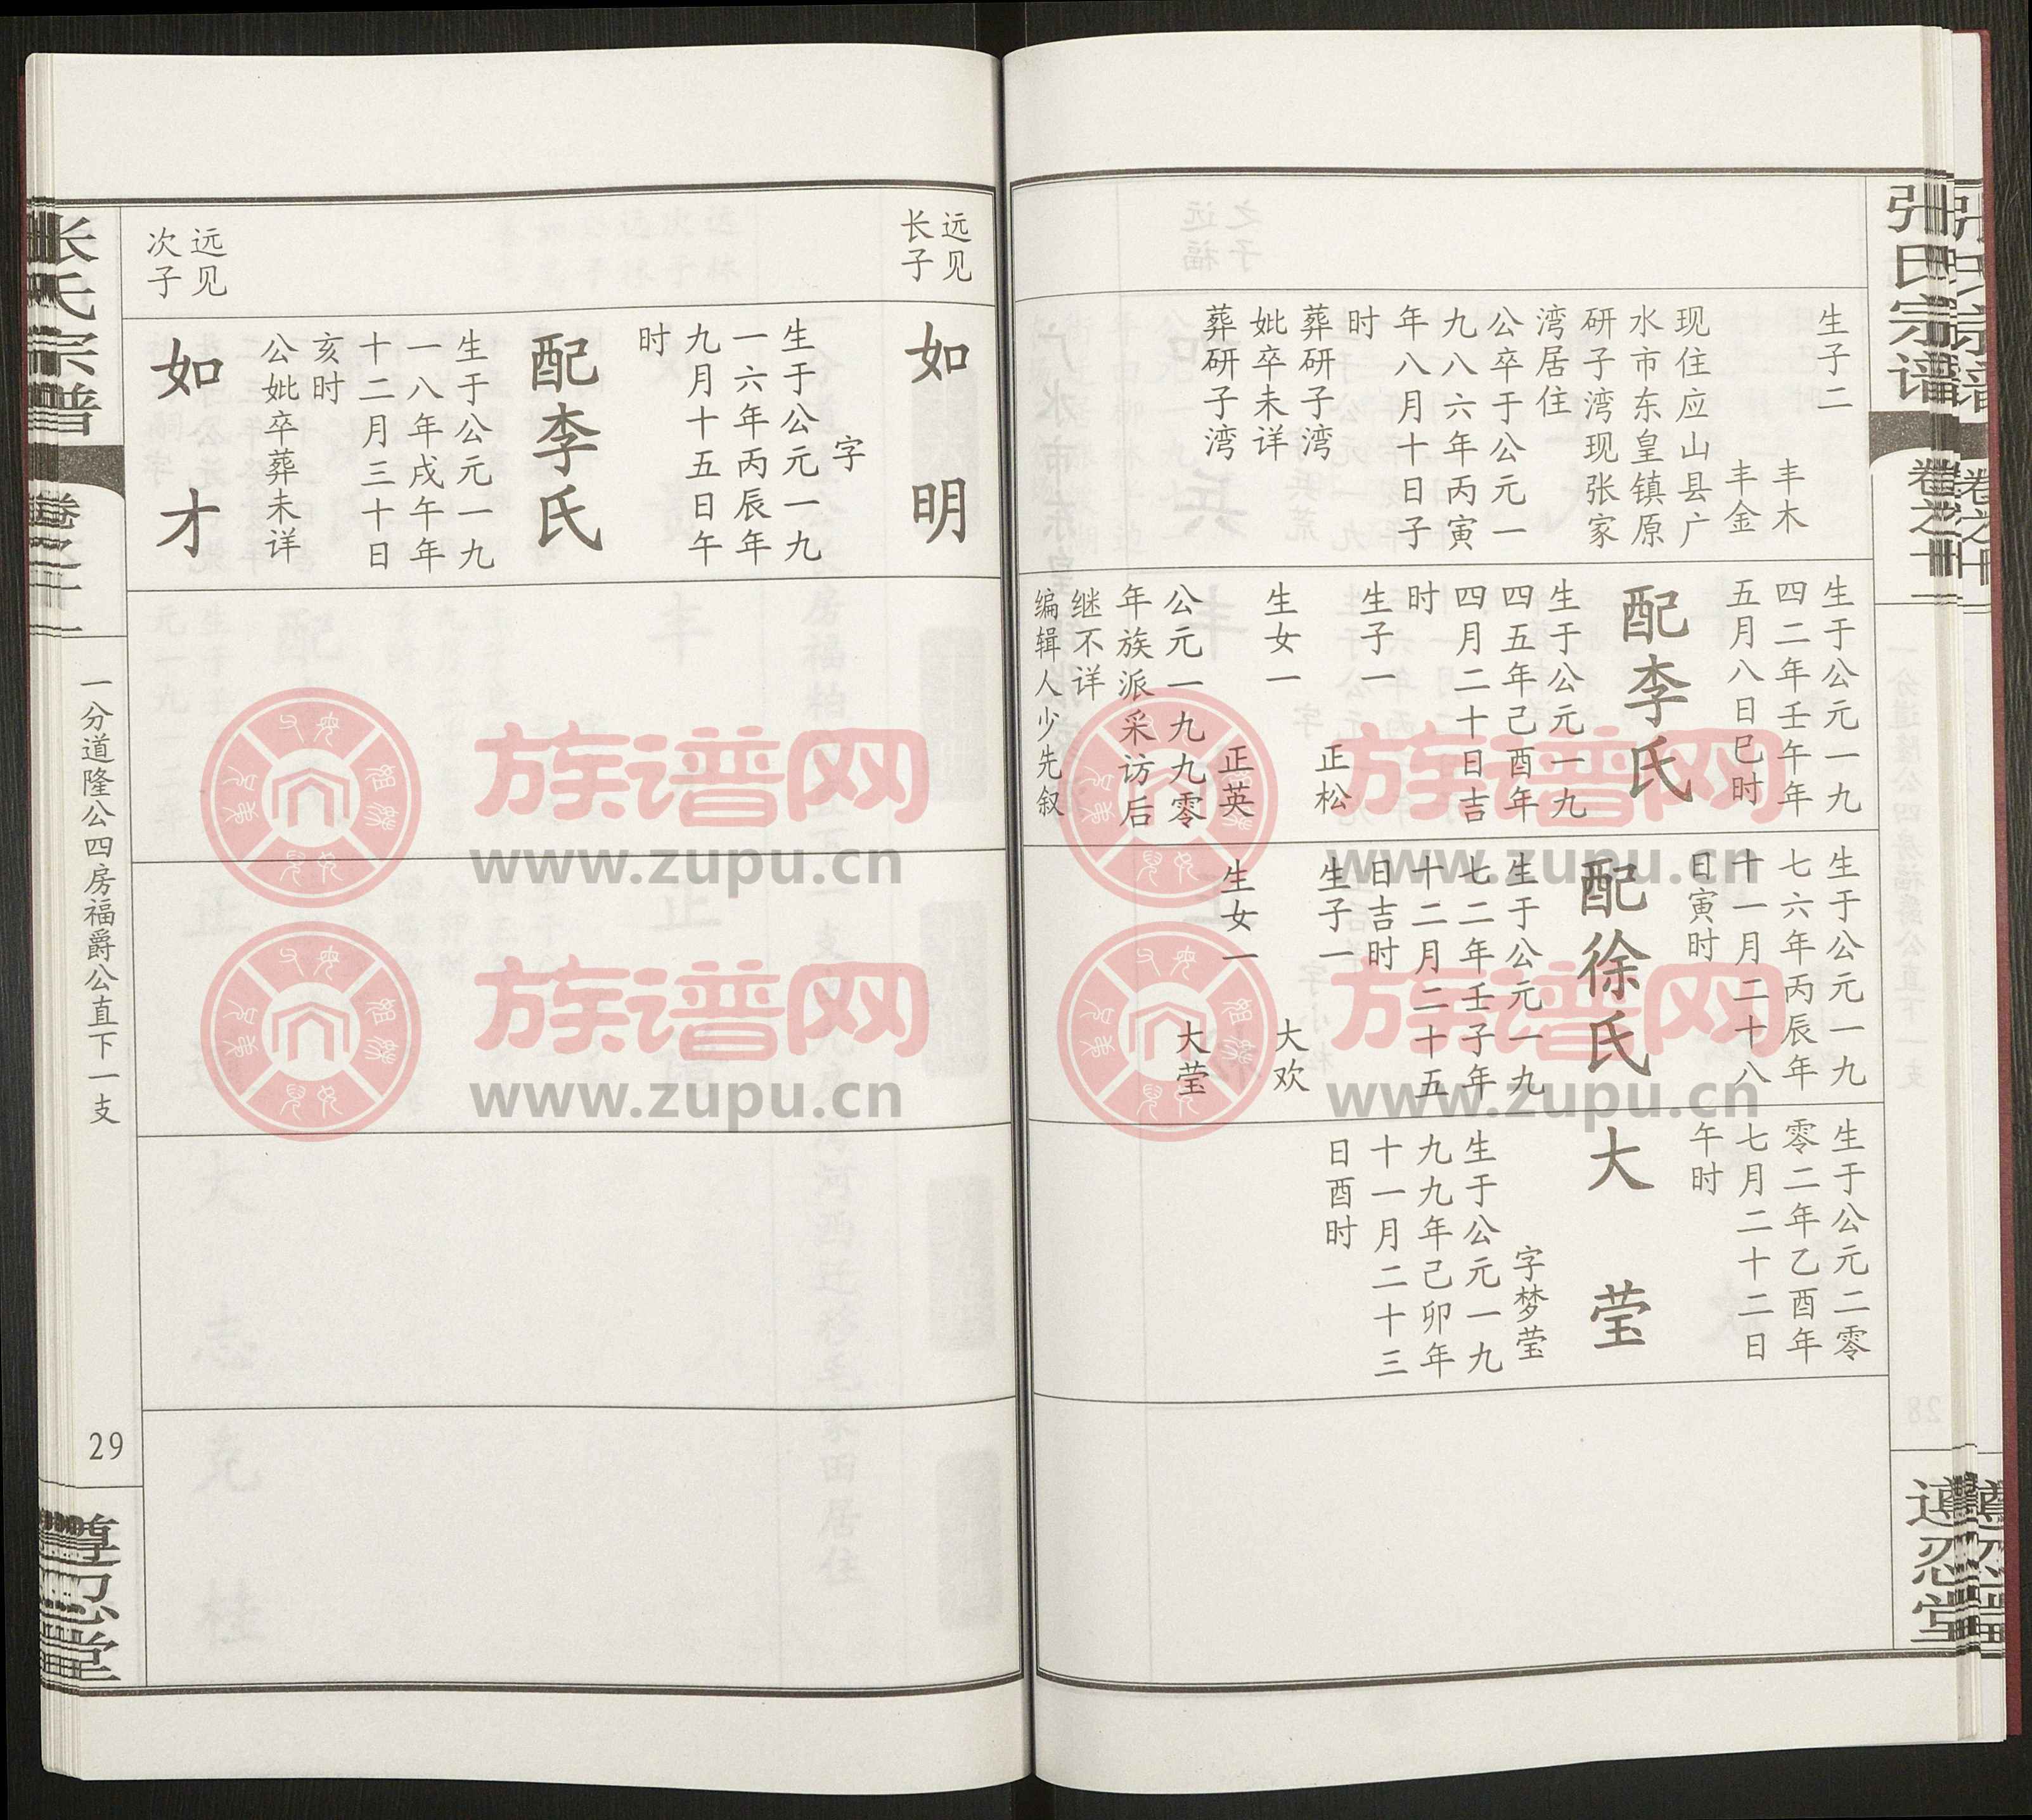 张氏宗谱
卷之十一
遵忍堂
生子二
丰木
丰金
现住应山县广
水市东皇镇原
研子湾现张家
湾居住
公卒于公元一
九八六年丙寅
年八月十日子
时
葬研子湾
妣卒未详
葬研子湾
生于公元一九
四二年壬午年
五月八日巳时
配李氏
生于公元一九
四五年己酉年
四月二十日吉
时
生子一
正松
生女一
正英
公元一九九零
年族派采访后
继不详
编辑人少先叙
生于公元一九
七六年丙辰年
十一月二十八
日寅时
配徐氏
生于公元一九
七二年壬子年
十二月二十五
日吉时
生子一
大欢
生女一
大莹
生于公元二零
零二年乙酉年
七月二十二日
午时
大莹
字梦莹
生于公元一九
九九年己卯年
十一月二十三
日酉时
远见
长子
如明
字
生于公元一九
一六年丙辰年
九月十五日午
时
配李氏
生于公元一九
一八年戌午年
十二月三十日
亥时
公妣卒葬未详
远见
次子
如才
张氏宗谱
卷之十一
一分道隆公四房福爵公直下一支
29
遵忍堂
族谱网
www.zupu.cn
族谱网
www.zupu.cn
族谱网
www.zupu.cn
族谱网
www.zupu.cn